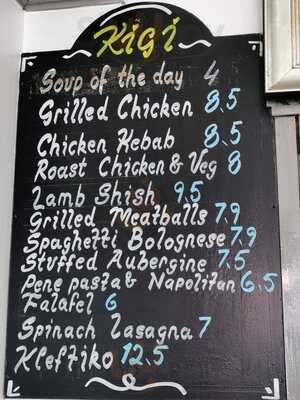 Kigi
Soup of the day 4
Grilled Chicken 8.5
Chicken Kebab 8.5
Roast Chicken & Veg 8
Lamb Shish 9.5
Grilled Meatballs 7.9
Spaghetti Bolognese 7.9
Stuffed Aubergine 7.5
Pene pasta & Napolitan 6.5
Falafel 6
Spinach Lasagna 7
Kleftiko 12.5